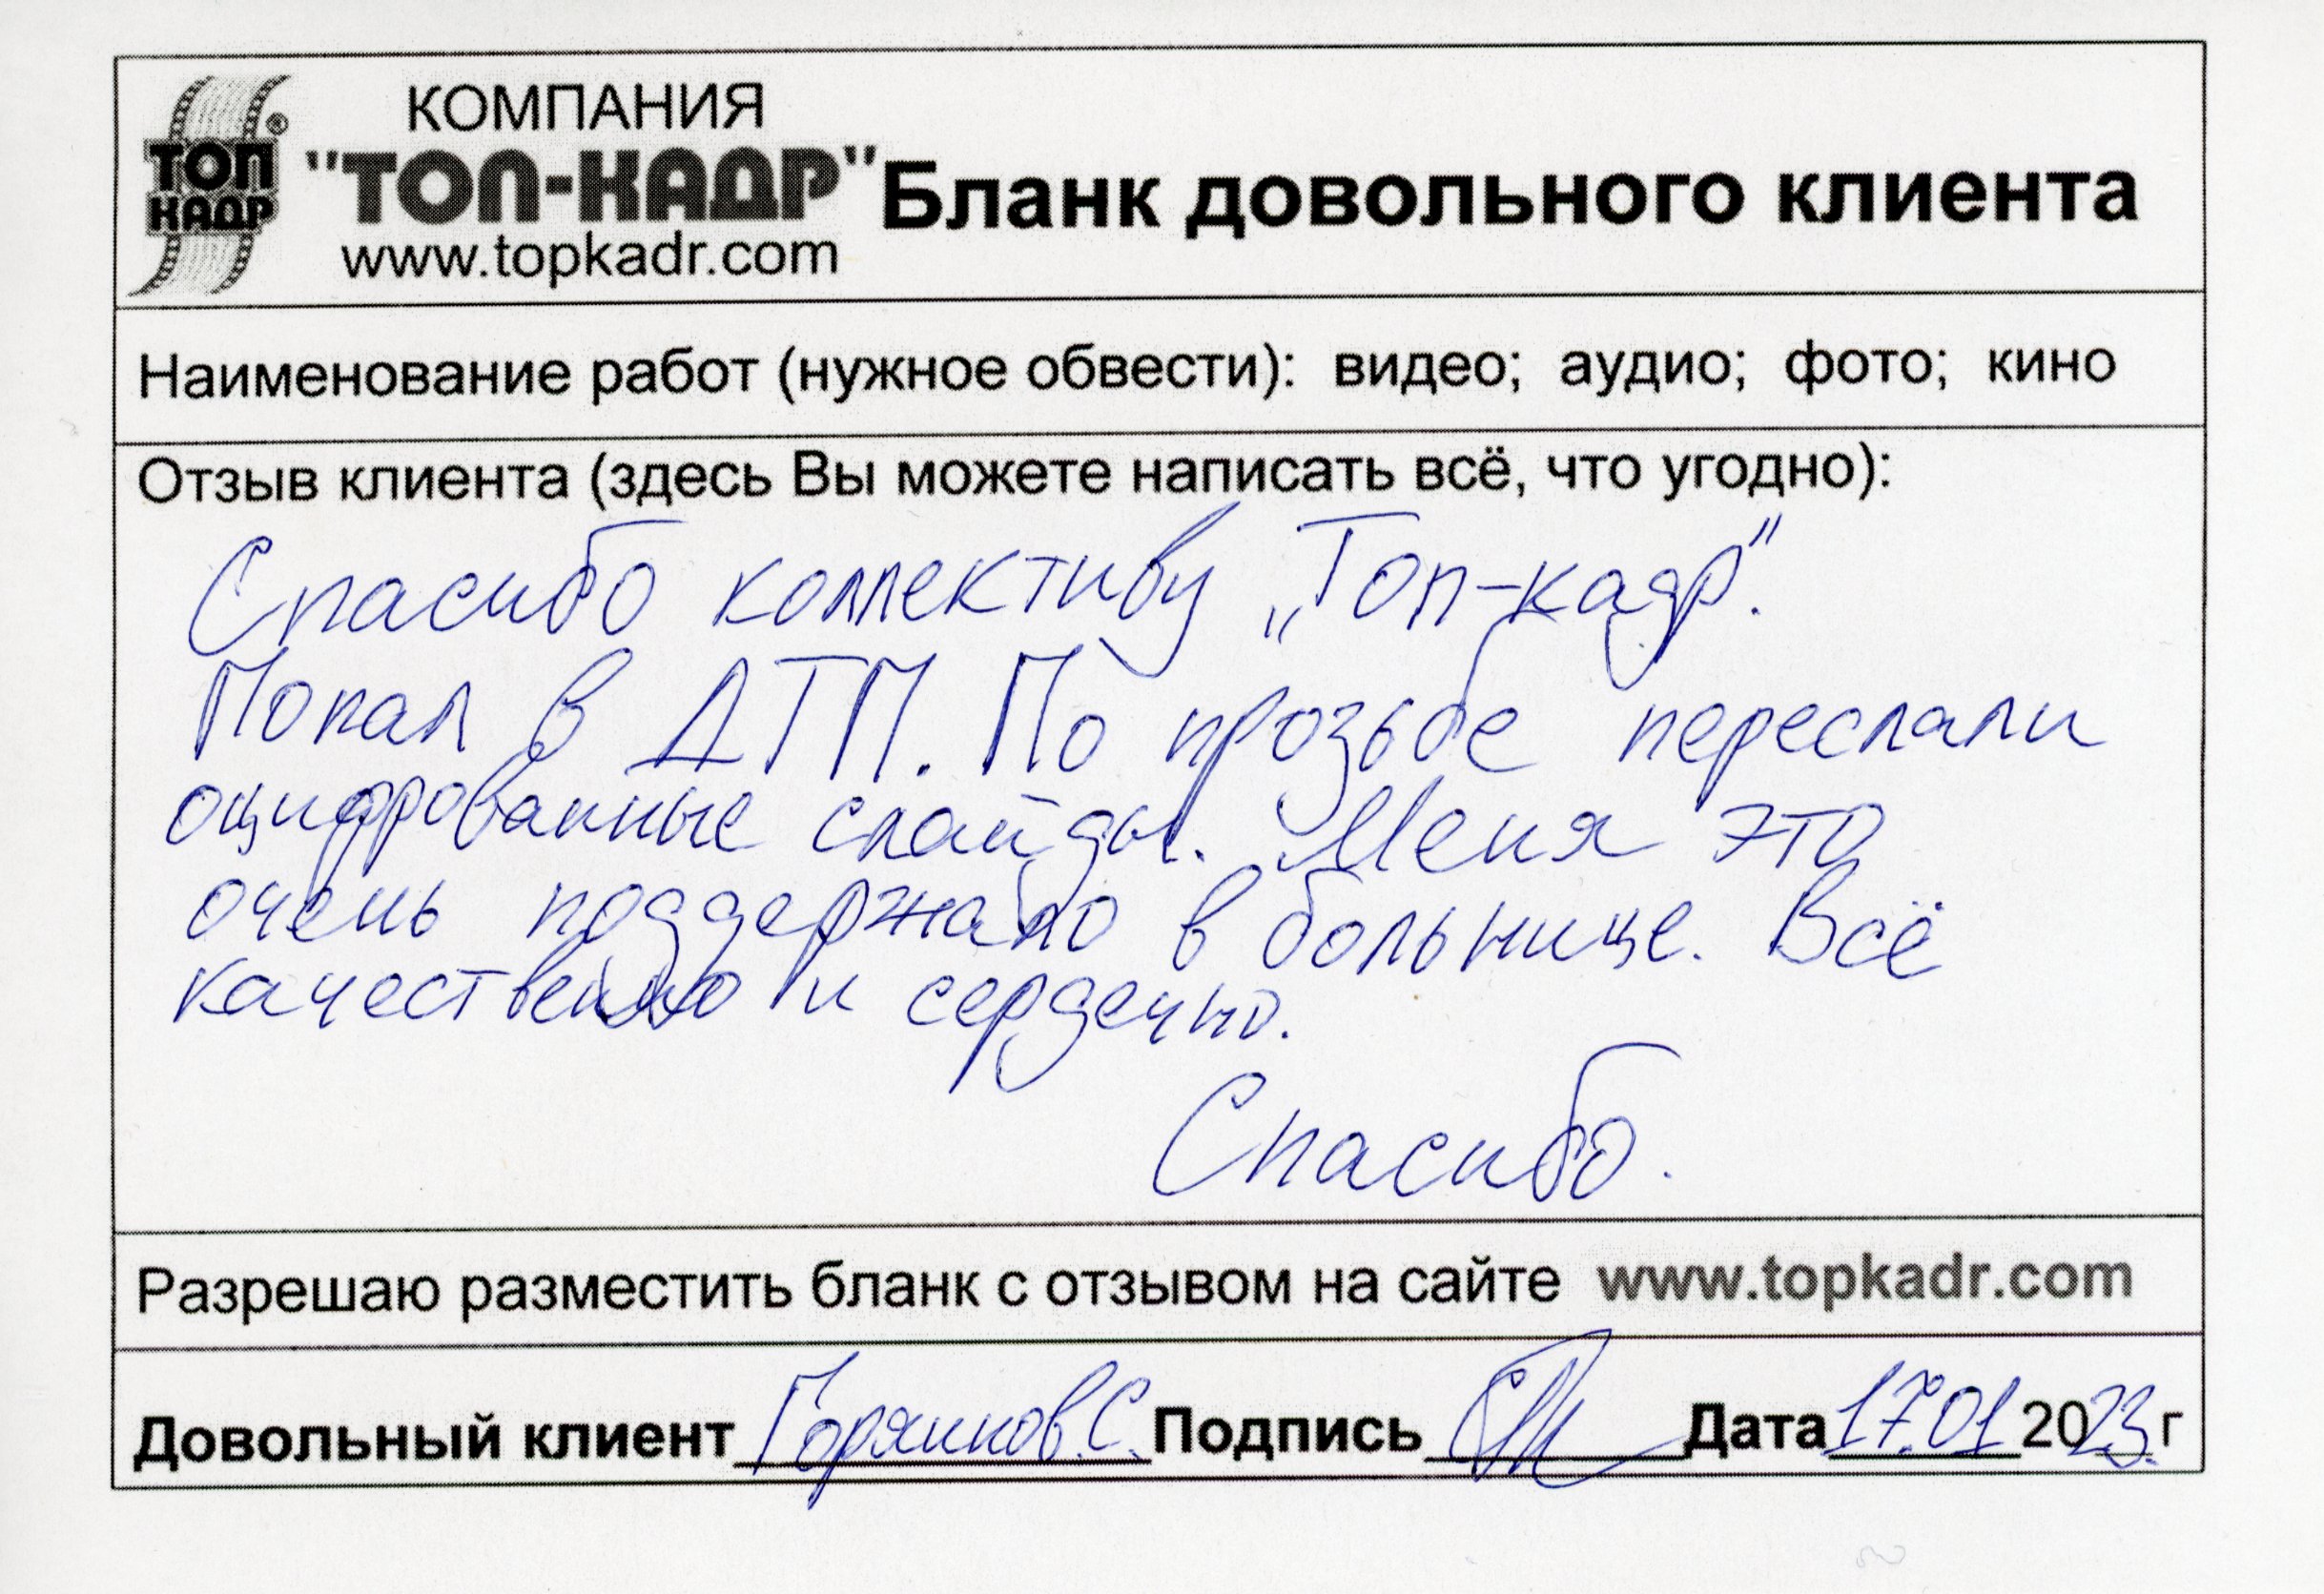 КОМПАНИЯ
ТОП КАДР ®
"ТОП-КАДР"
www.topkadr.com
Бланк довольного клиента
Наименование работ (нужное обвести): видео; аудио; фото; кино
Отзыв клиента (здесь Вы можете написать всё, что угодно):
Спасибо коллективу „Топ-кадр".
Попал в ДТП. По прозьбе переслали
оцифрованные слайды. Меня это
очень поддержало в больнице. Всё
качественно и сердечно.
Спасибо.
Разрешаю размесtить бланк с отзывом на сайте www.topkadr.com
Довольный клиент Горяинов С. Подпись Дата 17.01 2023. г